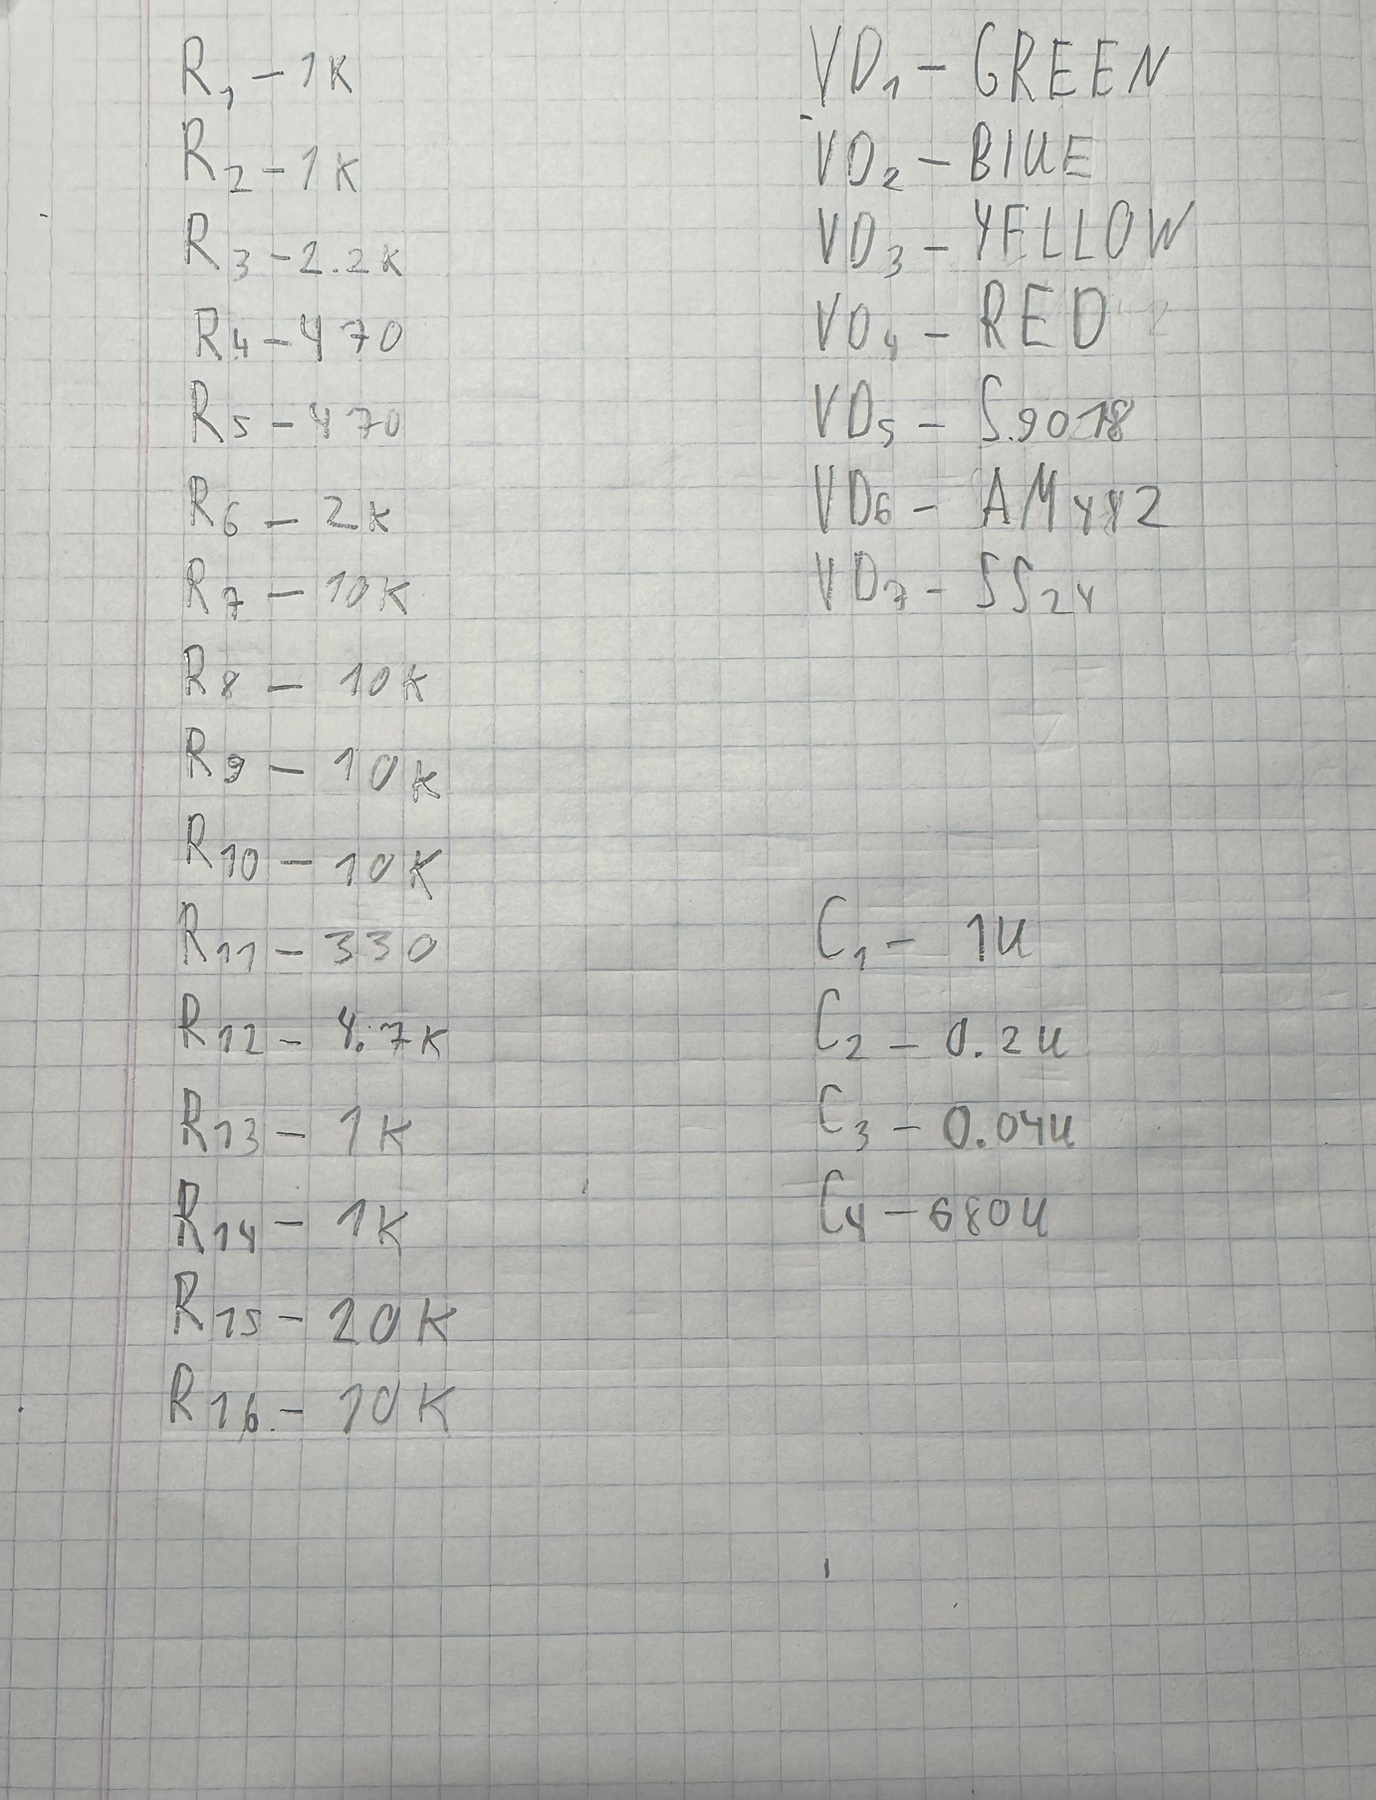 R1 - 1K
R2 - 1K
R3 - 2.2K
R4 - 470
R5 - 470
R6 - 2K
R7 - 10K
R8 - 10K
R9 - 10K
R10 - 10K
R11 - 330
R12 - 4.7K
R13 - 1K
R14 - 1K
R15 - 20K
R16 - 10K
VD1 - GREEN
VD2 - BlUE
VD3 - YELLOW
VD4 - RED
VD5 - S.9018
VD6 -
VD7 - SS24
C1 - 1U
C2 - 0.2U
C3 - 0.04U
C4 - 680U